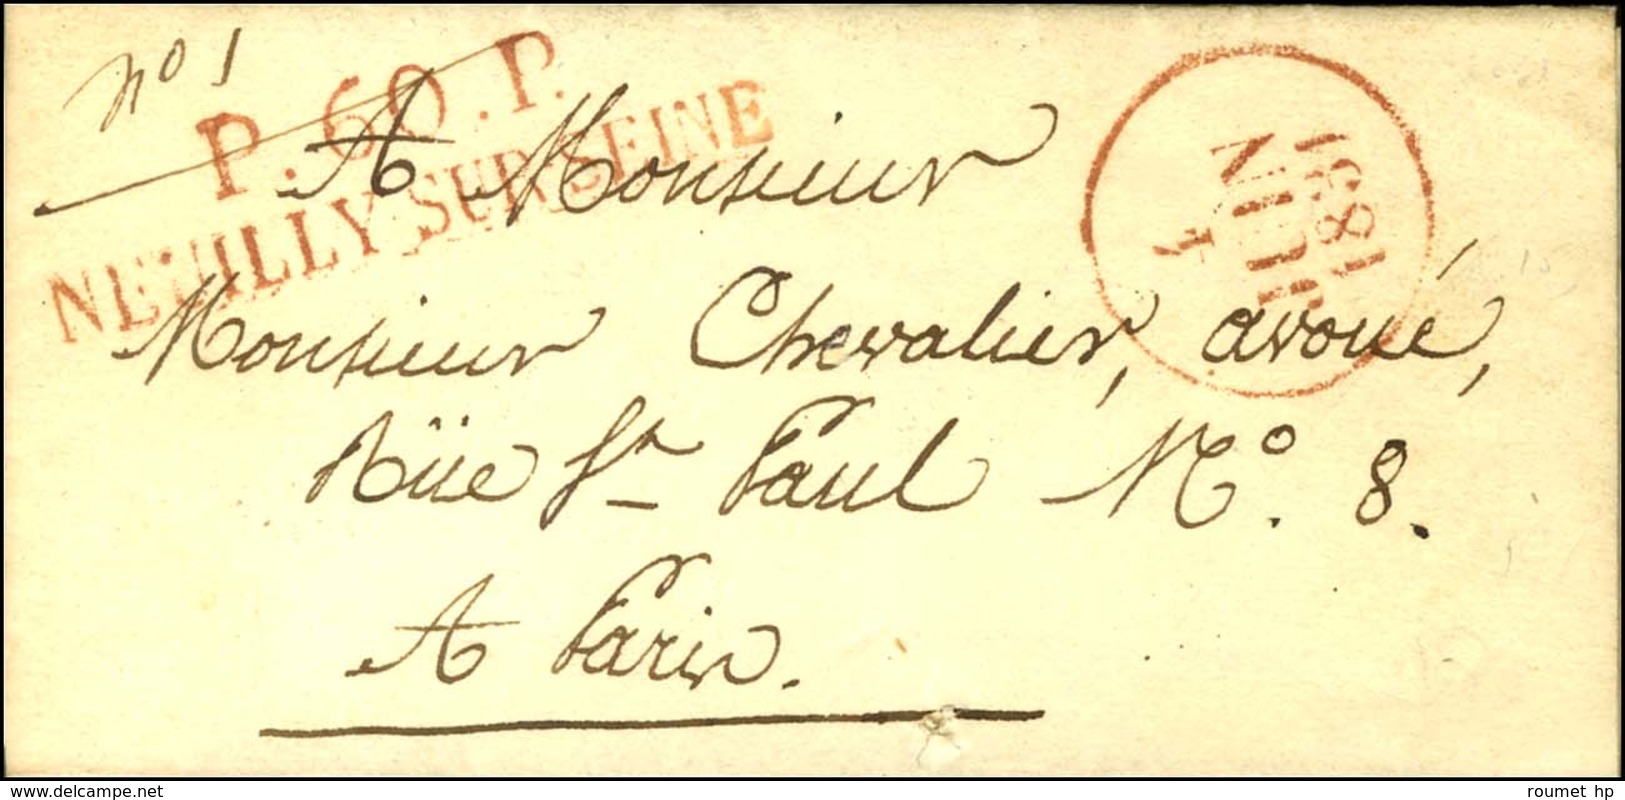 no 1
P. 60. P.
NEUILLY-SUR-SEINE
A Monsieur
Monsieur Chevalier, avoué,
Rüe St Paul No. 8.
A Paris.
1831
4
roumet hp